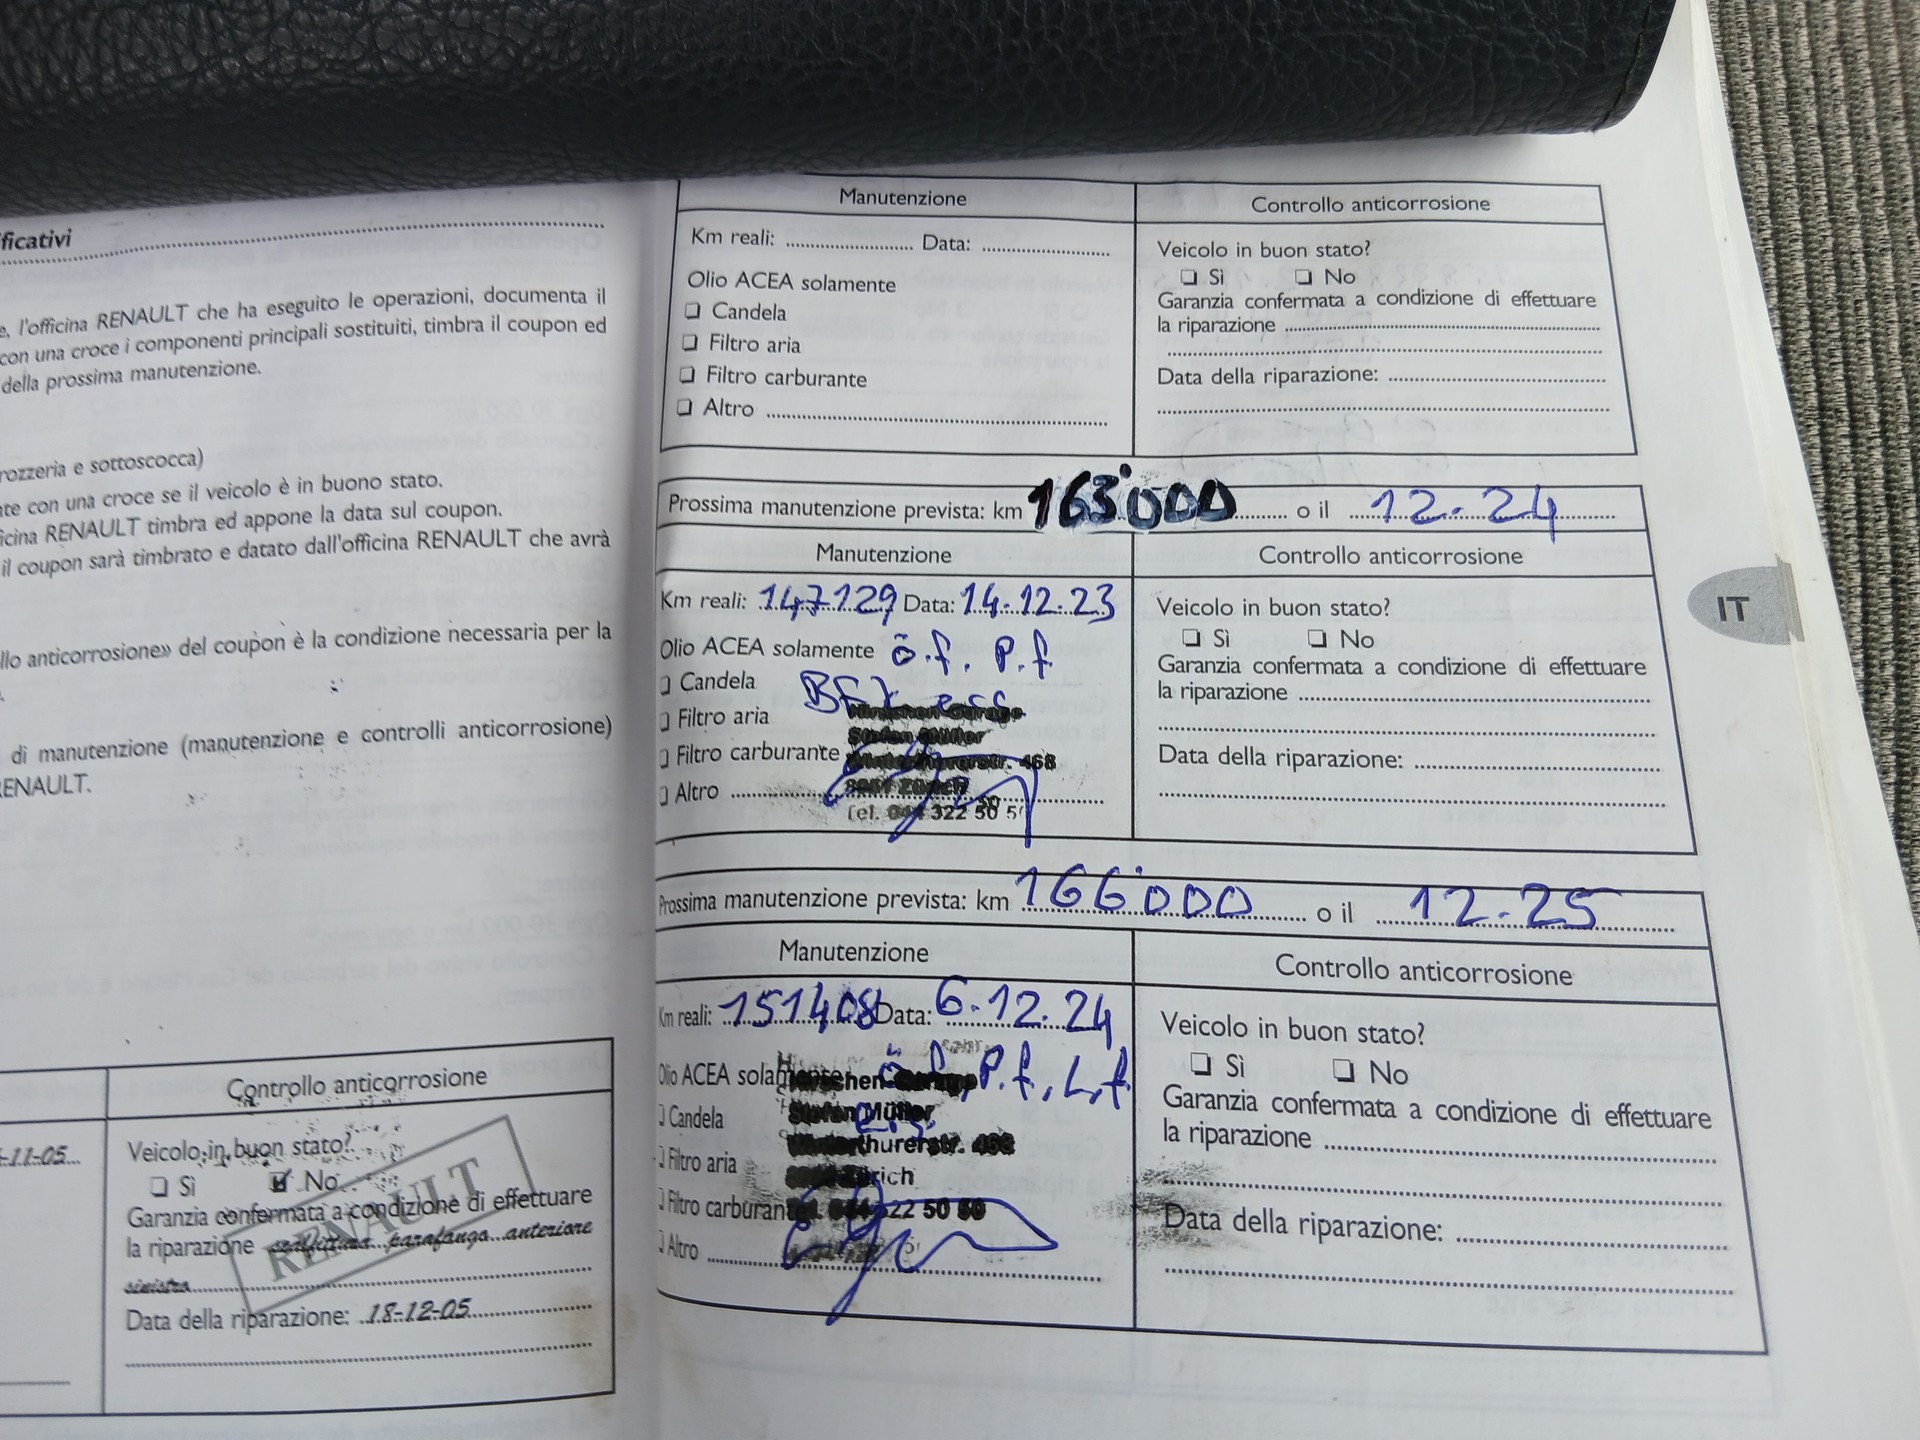 ficativi
e, l'officina RENAULT che ha eseguito le operazioni, documenta il
con una croce i componenti principali sostituiti, timbra il coupon ed
della prossima manutenzione.
rozzeria e sottoscocca)
nte con una croce se il veicolo è in buono stato.
icina RENAULT timbra ed appone la data sul coupon.
il coupon sarà timbrato e datato dall'officina RENAULT che avrà
llo anticorrosione» del coupon è la condizione necessaria per la
di manutenzione (manutenzione e controlli anticorrosione)
RENAULT.
Controllo anticorrosione
-11-05
Veicolo in buon stato?
Sì No
Garanzia confermata a condizione di effettuare
la riparazione scalfittura parafango anteriore
sinistro
Data della riparazione: 18-12-05
RENAULT
Manutenzione
Controllo anticorrosione
Km reali: Data:
Olio ACEA solamente
Candela
Filtro aria
Filtro carburante
Altro
Veicolo in buon stato?
Sì No
Garanzia confermata a condizione di effettuare
la riparazione
Data della riparazione:
Prossima manutenzione prevista: km 163'000 o il 12.24
Manutenzione
Controllo anticorrosione
Km reali: 147129 Data: 14.12.23
Olio ACEA solamente ö.f. P.f
Candela
Filtro aria
Filtro carburante
Altro
Hirschen Garage
Stefan Müller
Winterthurerstr. 468
Zürich
Tel. 044 322 50 50
Veicolo in buon stato?
Sì No
Garanzia confermata a condizione di effettuare
la riparazione
Data della riparazione:
IT
Prossima manutenzione prevista: km 166'000 o il 12.25
Manutenzione
Controllo anticorrosione
Km reali: 151408 Data: 6.12.24
Olio ACEA solamente ö.f, P.f, L.f
Candela
Filtro aria
Filtro carburante
Altro
Hirschen Garage
Stefan Müller
Winterthurerstr. 468
Zürich
Tel. 044 322 50 50
Veicolo in buon stato?
Sì No
Garanzia confermata a condizione di effettuare
la riparazione
Data della riparazione: